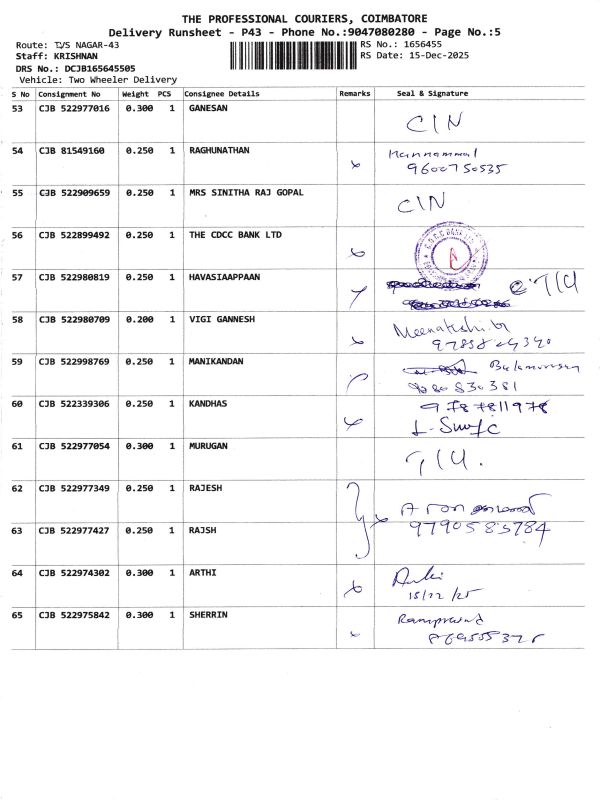 THE PROFESSIONAL COURIERS, COIMBATORE
Delivery Runsheet - P43 - Phone No.:9047080280 - Page No.:5
Route: TVS NAGAR-43
RS No.: 1656455
Staff: KRISHNAN
RS Date: 15-Dec-2025
DRS No.: DCJB165645505
Vehicle: Two Wheeler Delivery
S No Consignment No Weight PCS Consignee Details Remarks Seal & Signature
53 CJB 522977016 0.300 1 GANESAN CIN
54 CJB 81549160 0.250 1 RAGHUNATHAN Mannammal
9600750535
55 CJB 522909659 0.250 1 MRS SINITHA RAJ GOPAL CIN
56 CJB 522899492 0.250 1 THE CDCC BANK LTD
57 CJB 522980819 0.250 1 HAVASIAAPPAAN
58 CJB 522980709 0.200 1 VIGI GANNESH Meenakshi
59 CJB 522998769 0.250 1 MANIKANDAN
60 CJB 522339306 0.250 1 KANDHAS
61 CJB 522977054 0.300 1 MURUGAN
62 CJB 522977349 0.250 1 RAJESH
63 CJB 522977427 0.250 1 RAJSH 9790583784
64 CJB 522974302 0.300 1 ARTHI
15/12/25
65 CJB 522975842 0.300 1 SHERRIN